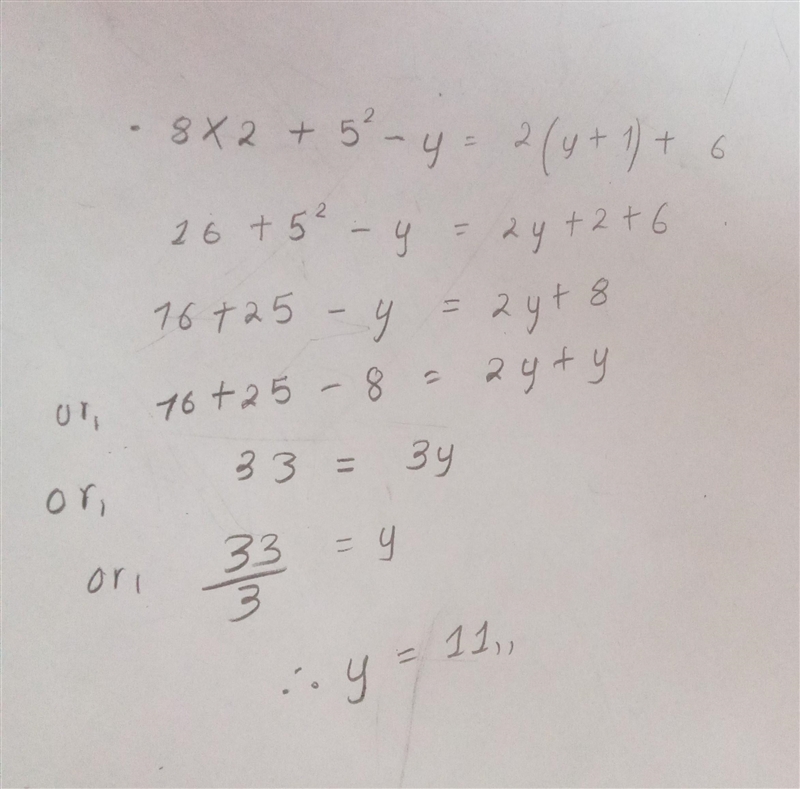 · 8 × 2 + 5² - y = 2(y + 1) + 6
16 + 5² - y = 2y + 2 + 6
16 + 25 - y = 2y + 8
or, 16 + 25 - 8 = 2y + y
or, 33 = 3y
or, 33/3 = y
∴ y = 11,,